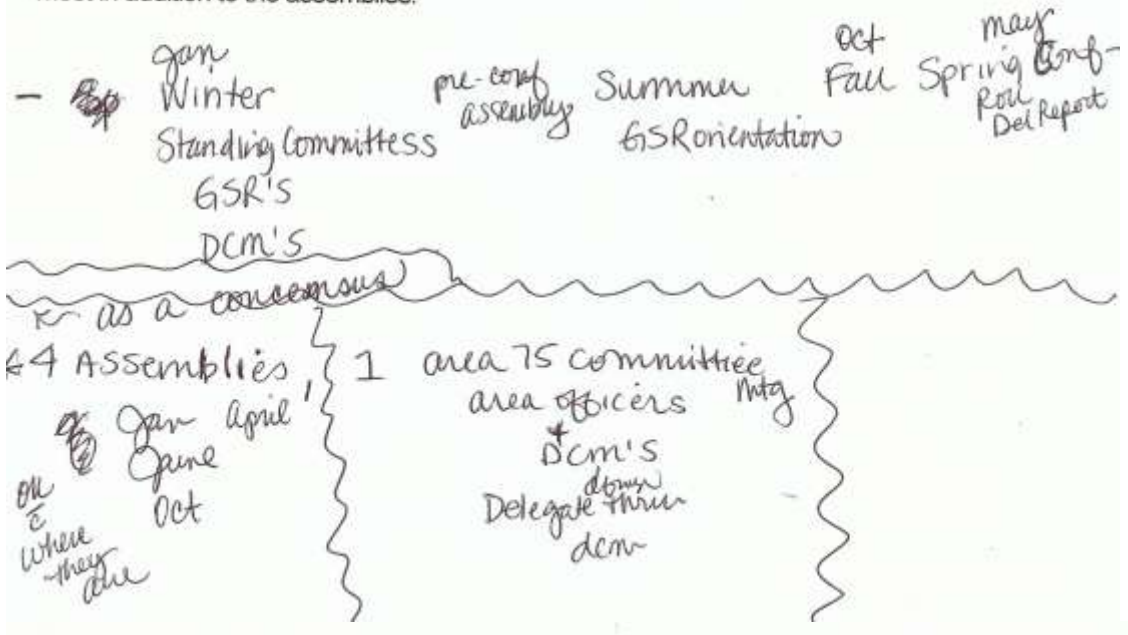 meet in addition to the assemblies.
- Jan
Winter
Standing Committess
GSR'S
DCM'S
pre-conf
assembly
Summer
GSR orientation
Oct
Fall
may
Spring Conf-
Del Report
as a concensus
4 Assemblies,
Jan April
June
Oct
ok
c̄
where
they
are
1 area 75 committiee
mtg
area officers
+
DCM'S
down
Delegate thru
dcm